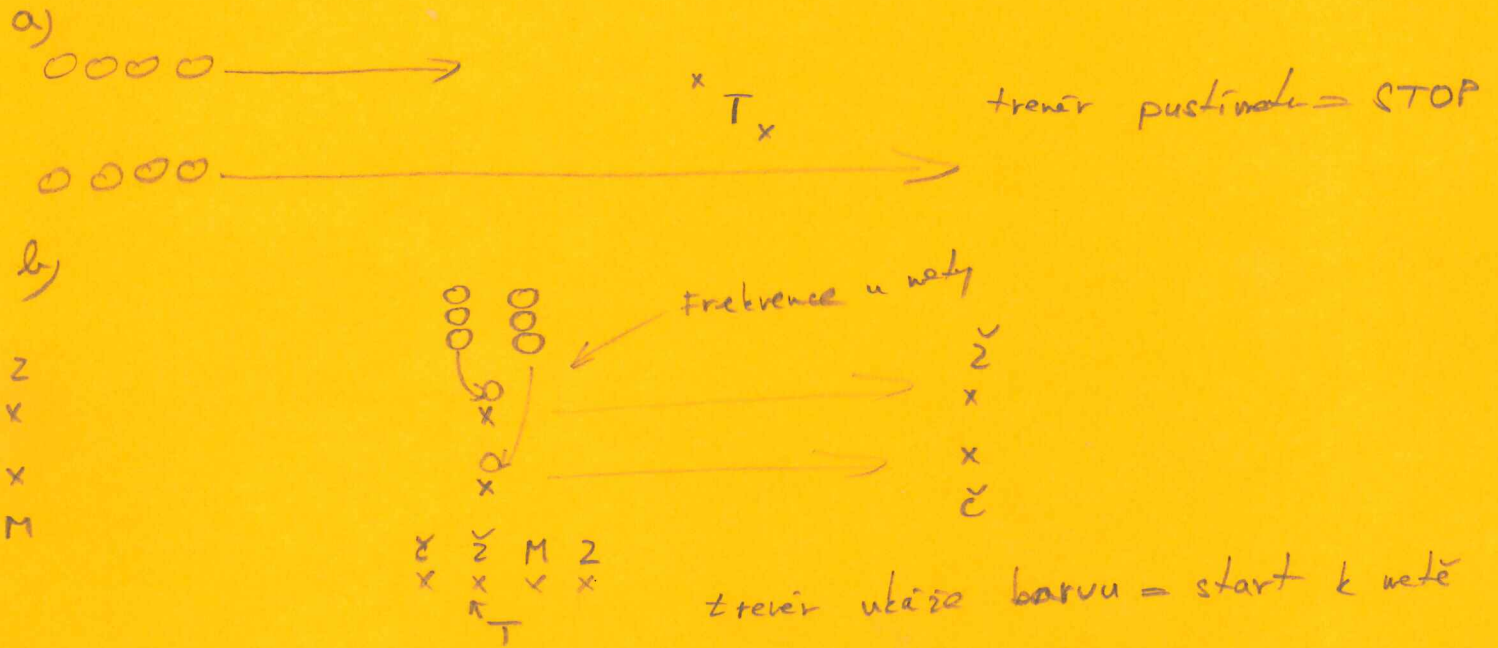 a)
x
T x
trenér pustí metu = STOP
b)
Frekvence u mety
Z
x
x
M
x
x
Ž
x
x
Č
Č Ž M Z
x x x x
T
trenér ukáže barvu = start k metě